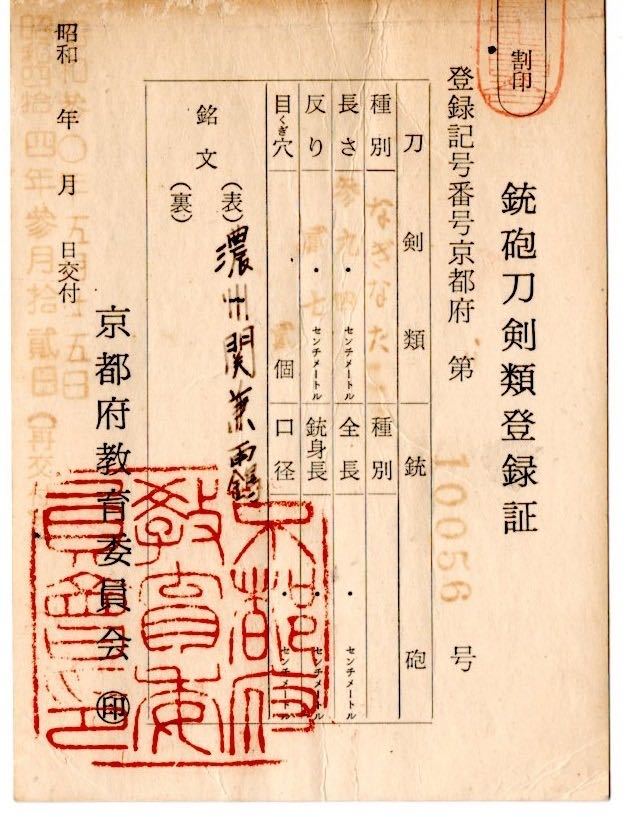 割印
銃砲刀剣類登録証
登録記号番号京都府 第 10056 号
刀剣類 銃砲
種別 なぎなた 種別
長さ 参九・四センチメートル 全長 ・ センチメートル
反り 貳・七センチメートル 銃身長 ・ センチメートル
目くぎ穴 貳個 口径 ・ センチメートル
銘文 (表) 濃州関兼
(裏)
昭和 年 月 日交付
昭和四拾四年參月拾貳日(再交
京都府教育委員会 ㊞
京都府
教育委
員会印